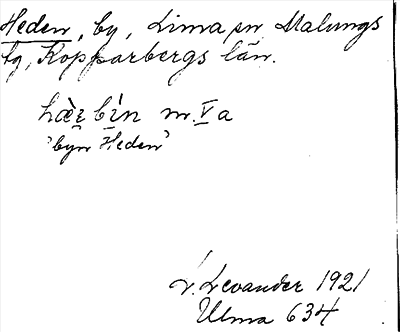 Heden, by, Lima sn Malungs
tg, Kopparbergs län.
hæ̀ɪ bìn m. Va
'byn Heden'
L. Levander 1921
Ulma 634